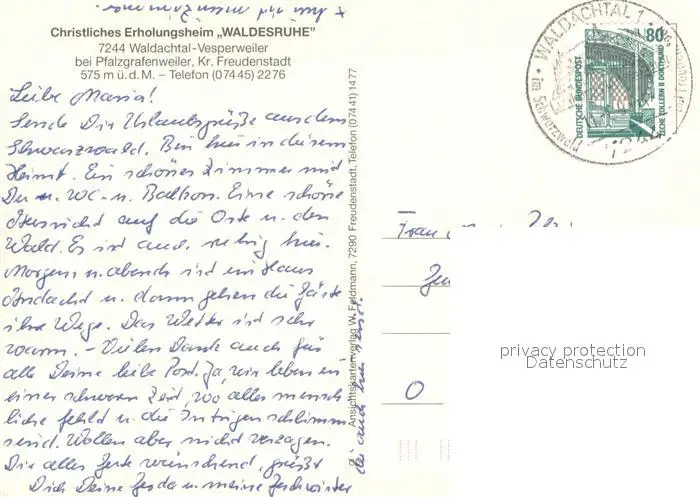 Christliches Erholungsheim „WALDESRUHE"
7244 Waldachtal-Vesperweiler
bei Pfalzgrafenweiler, Kr. Freudenstadt
575 m ü. d. M. – Telefon (07445) 2276
Liebe Maria!
Sende Dir Urlaubsgrüße aus dem
Schwarzwald. Bin hier in diesem
Heimt. Ein schönes Zimmer mit
Du u. WC u. Balkon. Eine schöne
Aussicht auf die Orte u. den
Wald. Es ist auch ruhig hier.
Morgens u. abends ist im Haus
Andacht u. dann gehen die Gäste
ihre Wege. Das Wetter ist sehr
warm. – Vielen Dank auch für
alle Deine liebe Post. Ja, wir leben in
einer schweren Zeit, wo alles mensch
liche fehlt u. die Intrigen schlimm
send. Wollen aber nicht verzagen.
Dir alles Gute wünschend, grüßt
Dich Deine u. meine Geschwister
die auch hier send.
Ansichtskartenverlag W. Feldmann, 7290 Freudenstadt, Telefon (07441) 1477
WALDACHTAL 1
7244
80
DEUTSCHE BUNDESPOST
ZECHE ZOLLERN II DORTMUND
Frau
O
privacy protection
Datenschutz